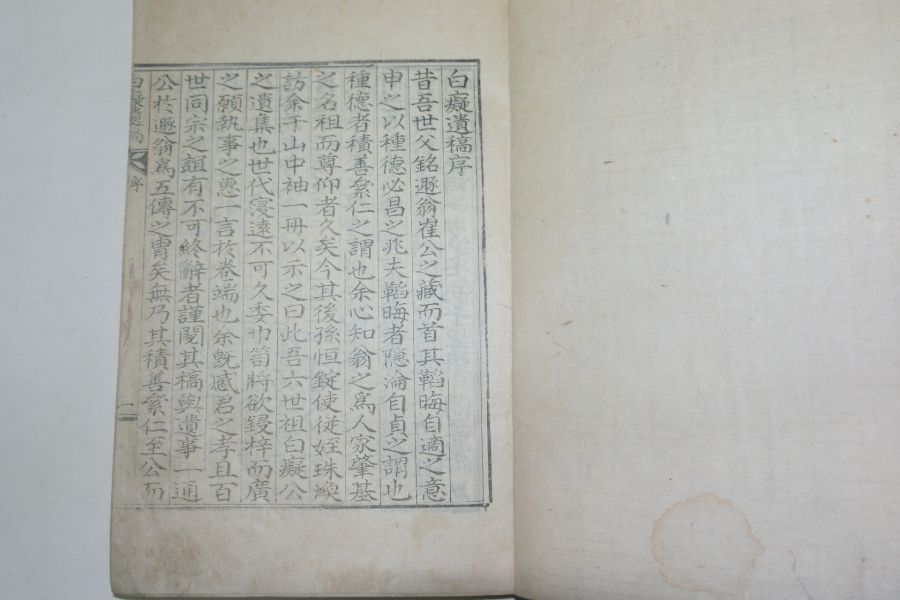 白癡遺稿序
昔吾世父銘遯翁崔公之藏而首其韜晦自適之意
申之以種德必昌之兆夫韜晦者隱淪自貞之謂也
種德者積善絫仁之謂也余心知翁之爲人家肇基
之名祖而尊仰者久矣今其後孫恒錠使從姪珠煥
訪余于山中袖一冊以示之曰此吾六世祖白癡公
之遺集也世代寖遠不可久委巾笥將欲鋟梓而廣
之願執事之惠一言於卷端也余旣感君之孝且百
世同宗之誼有不可終辭者謹閱其稿與遺事一通
公於遯翁爲五傳之胄矣無乃其積善絫仁至公而
白癡遺稿
序
一